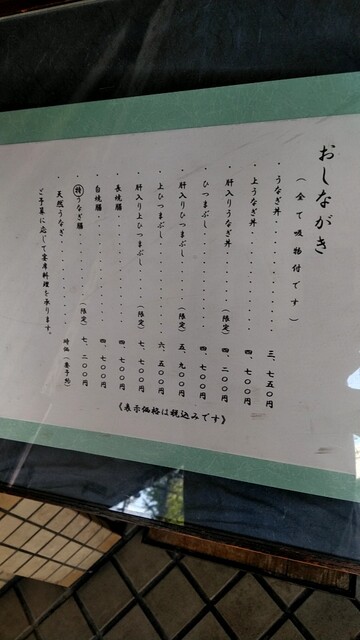 おしながき
（全て吸物付です）
・うなぎ丼・・・・・・・・・三、七五〇円
・上うなぎ丼・・・・・・・・四、七〇〇円
・肝入りうなぎ丼・・・・（限定）四、二〇〇円
・ひつまぶし・・・・・・・・四、七〇〇円
・肝入りひつまぶし・・・（限定）五、九〇〇円
・上ひつまぶし・・・・・・・六、五〇〇円
・肝入り上ひつまぶし・・（限定）七、七〇〇円
・長焼膳・・・・・・・・・・四、七〇〇円
・白焼膳・・・・・・・・・・四、七〇〇円
・㊕うなぎ膳・・・・・・（限定）七、二〇〇円
・天然うなぎ・・・・・・・・時価（要予約）
ご予算に応じて宴席料理を承ります。
《表示価格は税込みです》